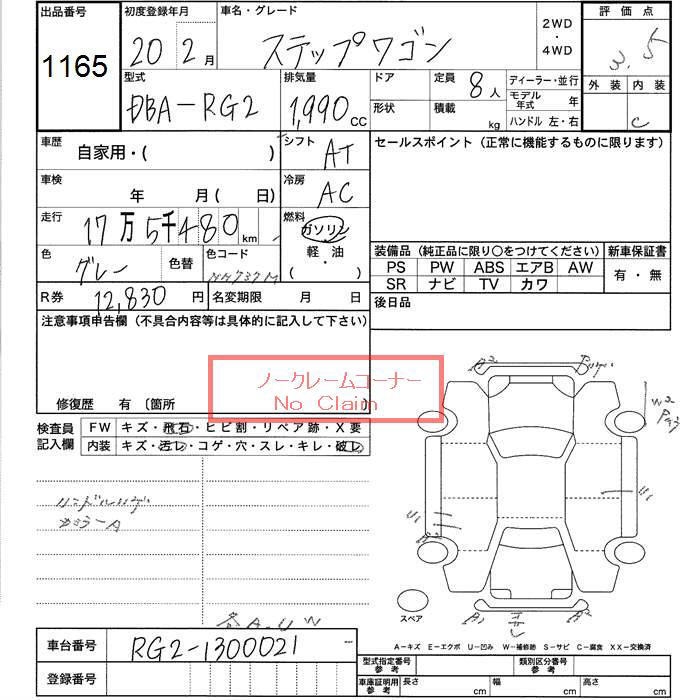 出品番号 初度登録年月 車名・グレード 2WD・4WD 評価点
1165 20年2月 ステップワゴン 3.5
型式 排気量 ドア 定員 8人 ディーラー・並行 外装 内装
DBA-RG2 1,990 CC 形状 積載 kg モデル年式 年 C
ハンドル 左・右
車歴 自家用・( ) シフト AT セールスポイント(正常に機能するものに限ります)
車検 年 月( 日) 冷房 AC
走行 17万5千480km 燃料 ガソリン 軽・油 (・)
装備品(純正品に限り○をつけてください) 新車保証書
色 グレー 色替 色コード NH737M PS PW ABS エアB AW 有・無
SR ナビ TV カワ
R券 12,830円 名変期限 月 日 後日品
注意事項申告欄(不具合内容等は具体的に記入して下さい)
ノークレームコーナー
No Claim
修復歴 有 〔箇所
検査員記入欄 FW キズ・飛石・ヒビ割・リペア跡・X要
内装 キズ・汚レ・コゲ・穴・スレ・キレ・破レ
A2
W2
U1
U1
カラーA
各A.U W
スペア
A2
A-キズ E-エクボ U-凹み W-補修跡 S-サビ C-腐食 XX-交換済
車台番号 RG2-1300021
登録番号
型式指定番号 参考 類別区分番号 参考
車庫証明用 参考 長さ cm 幅 cm 高さ cm